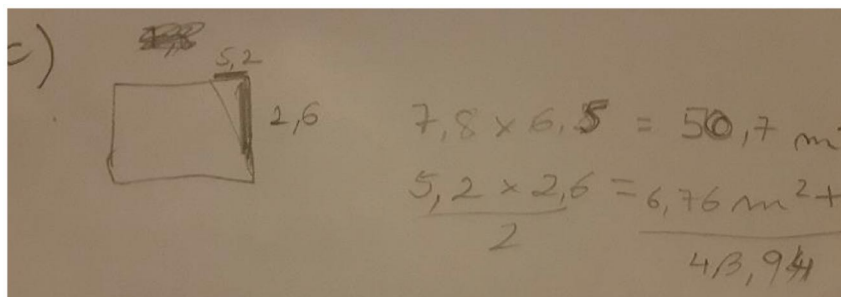 c)
5,2
2,6
7,8 x 6,5 = 50,7 m²
5,2 x 2,6 = 6,76 m² +
2
43,94